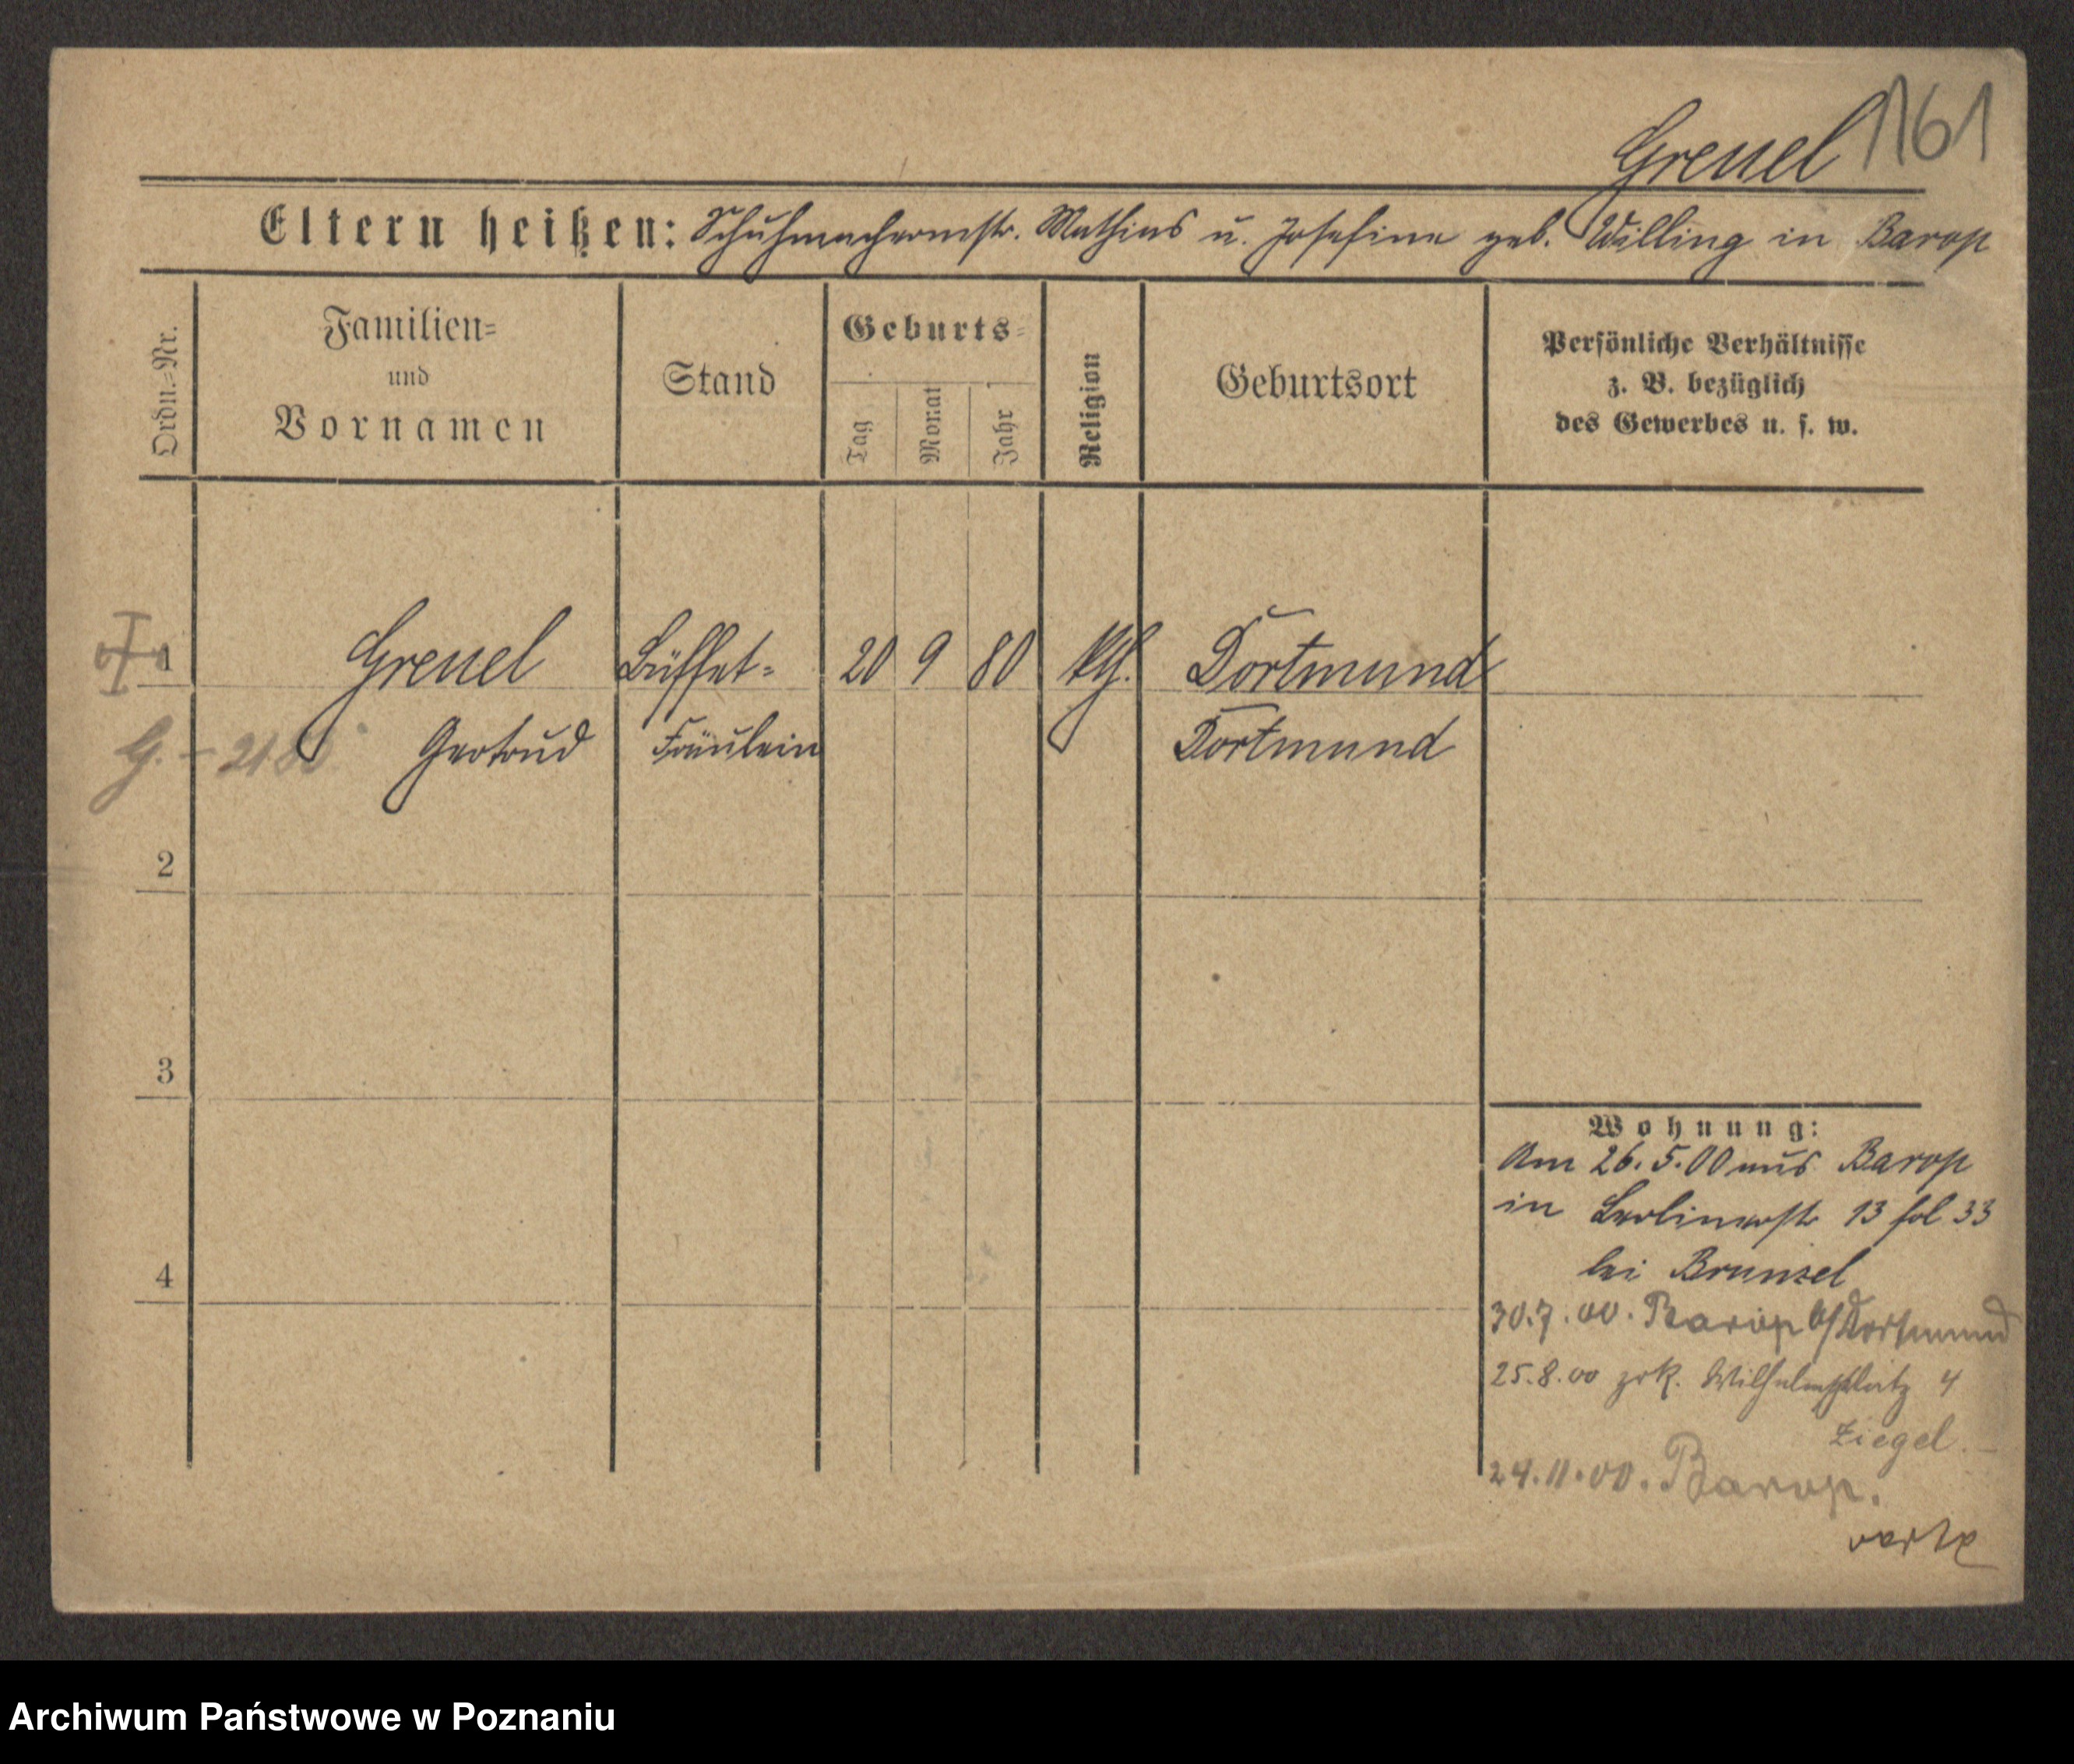 1161
Greuel
Eltern heißen: Schuhmachermstr. Mathias u. Josefine geb. Willing in Barop
Ordn.=Nr.
Familien=
und
Vornamen
Stand
Geburts=
Tag
Monat
Jahr
Religion
Geburtsort
Persönliche Verhältnisse
z. B. bezüglich
des Gewerbes u. s. w.
1
Greuel Büffet- 20 9 80 kth. Dortmund
G. - 21
Gertrud Fräulein Dortmund
2
3
4
Wohnung:
Am 26.5.00 aus Barop
in Berlinerstr 13 fol 33
bei Brunzel
30.7.00. Barop b/Dortmund
25.8.00 zrk. Wilhelmsplatz 4
Ziegel.
24.11.00. Barop.
Archiwum Państwowe w Poznaniu